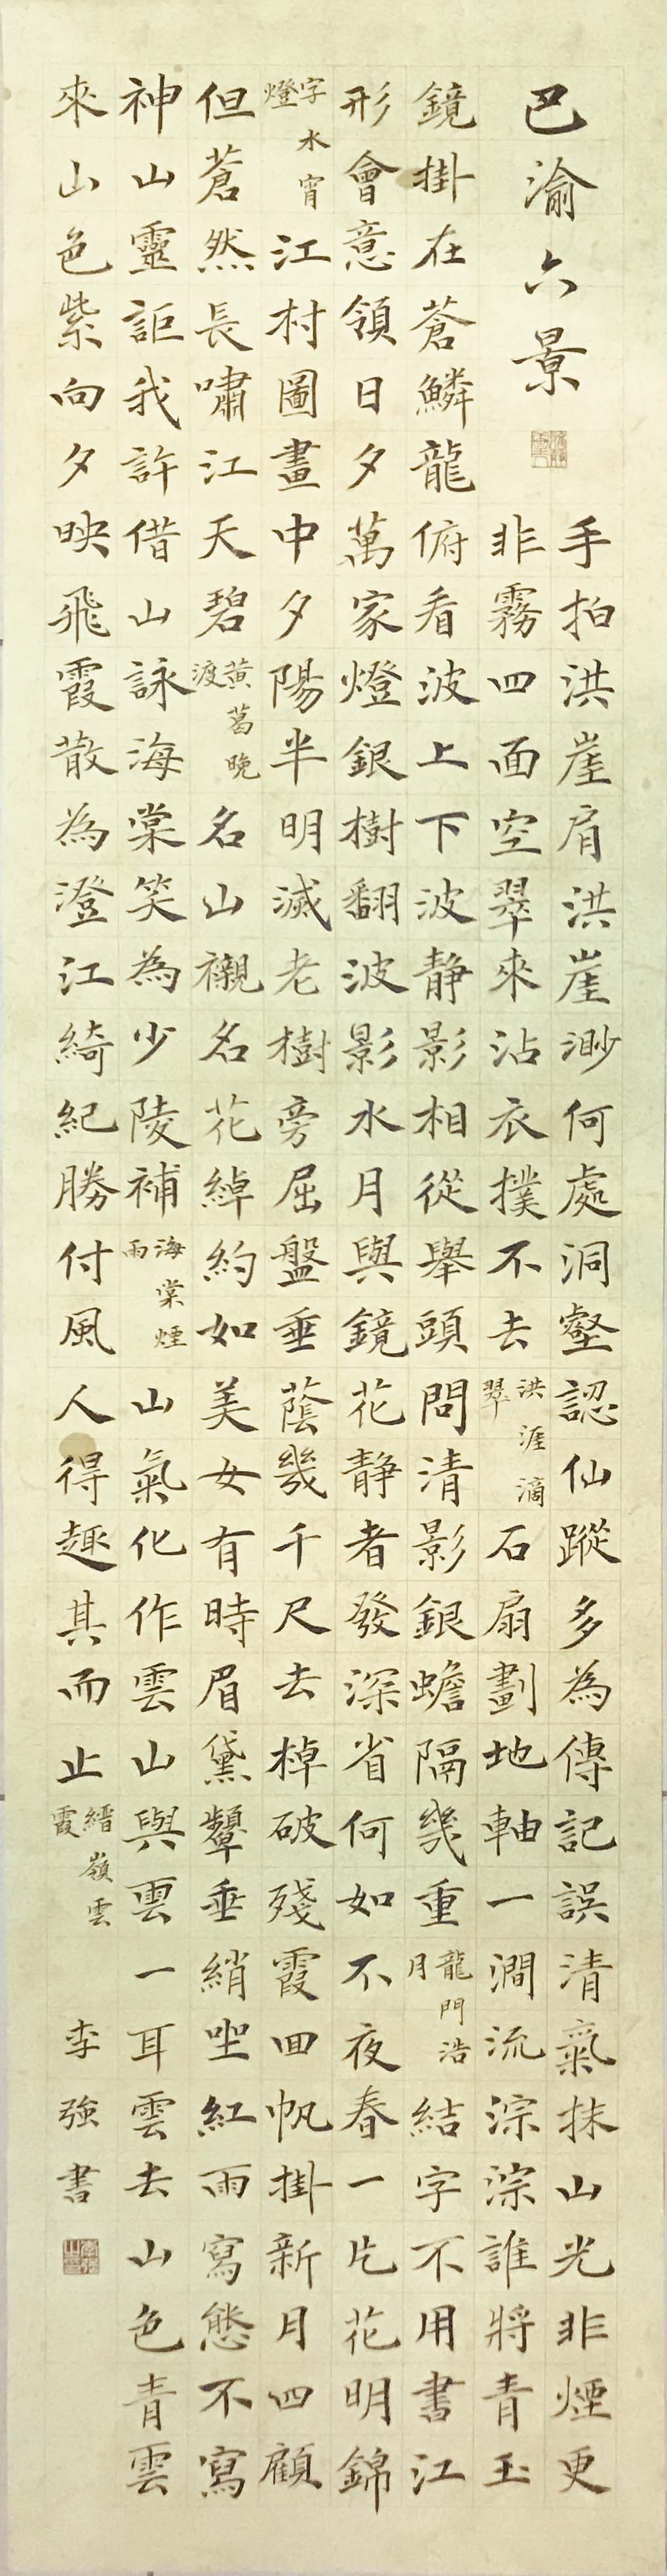 巴渝六景
手拍洪崖肩洪崖渺何處洞壑認仙蹤多為傳記誤清氣抹山光非煙更
非霧四面空翠來沾衣撲不去洪涯滴翠石扇劃地軸一澗流淙淙誰將青玉
鏡掛在蒼鱗龍俯看波上下波静影相從舉頭問清影銀蟾隔幾重龍門浩月結字不用書江
形會意領日夕萬家燈銀樹翻波影水月與鏡花静者發深省何如不夜春一片花明錦
字水宵燈江村圖畫中夕陽半明滅老樹旁屈盤垂蔭幾千尺去棹破殘霞回帆掛新月四顧
但蒼然長嘯江天碧黄葛晚渡名山襯名花綽約如美女有時眉黛顰垂綃坐紅雨寫態不寫
神山靈詎我許借山詠海棠笑為少陵補海棠煙雨山氣化作雲山與雲一耳雲去山色青雲
來山色紫向夕映飛霞散為澄江綺紀勝付風人得趣其而止縉嶺雲霞
李強書